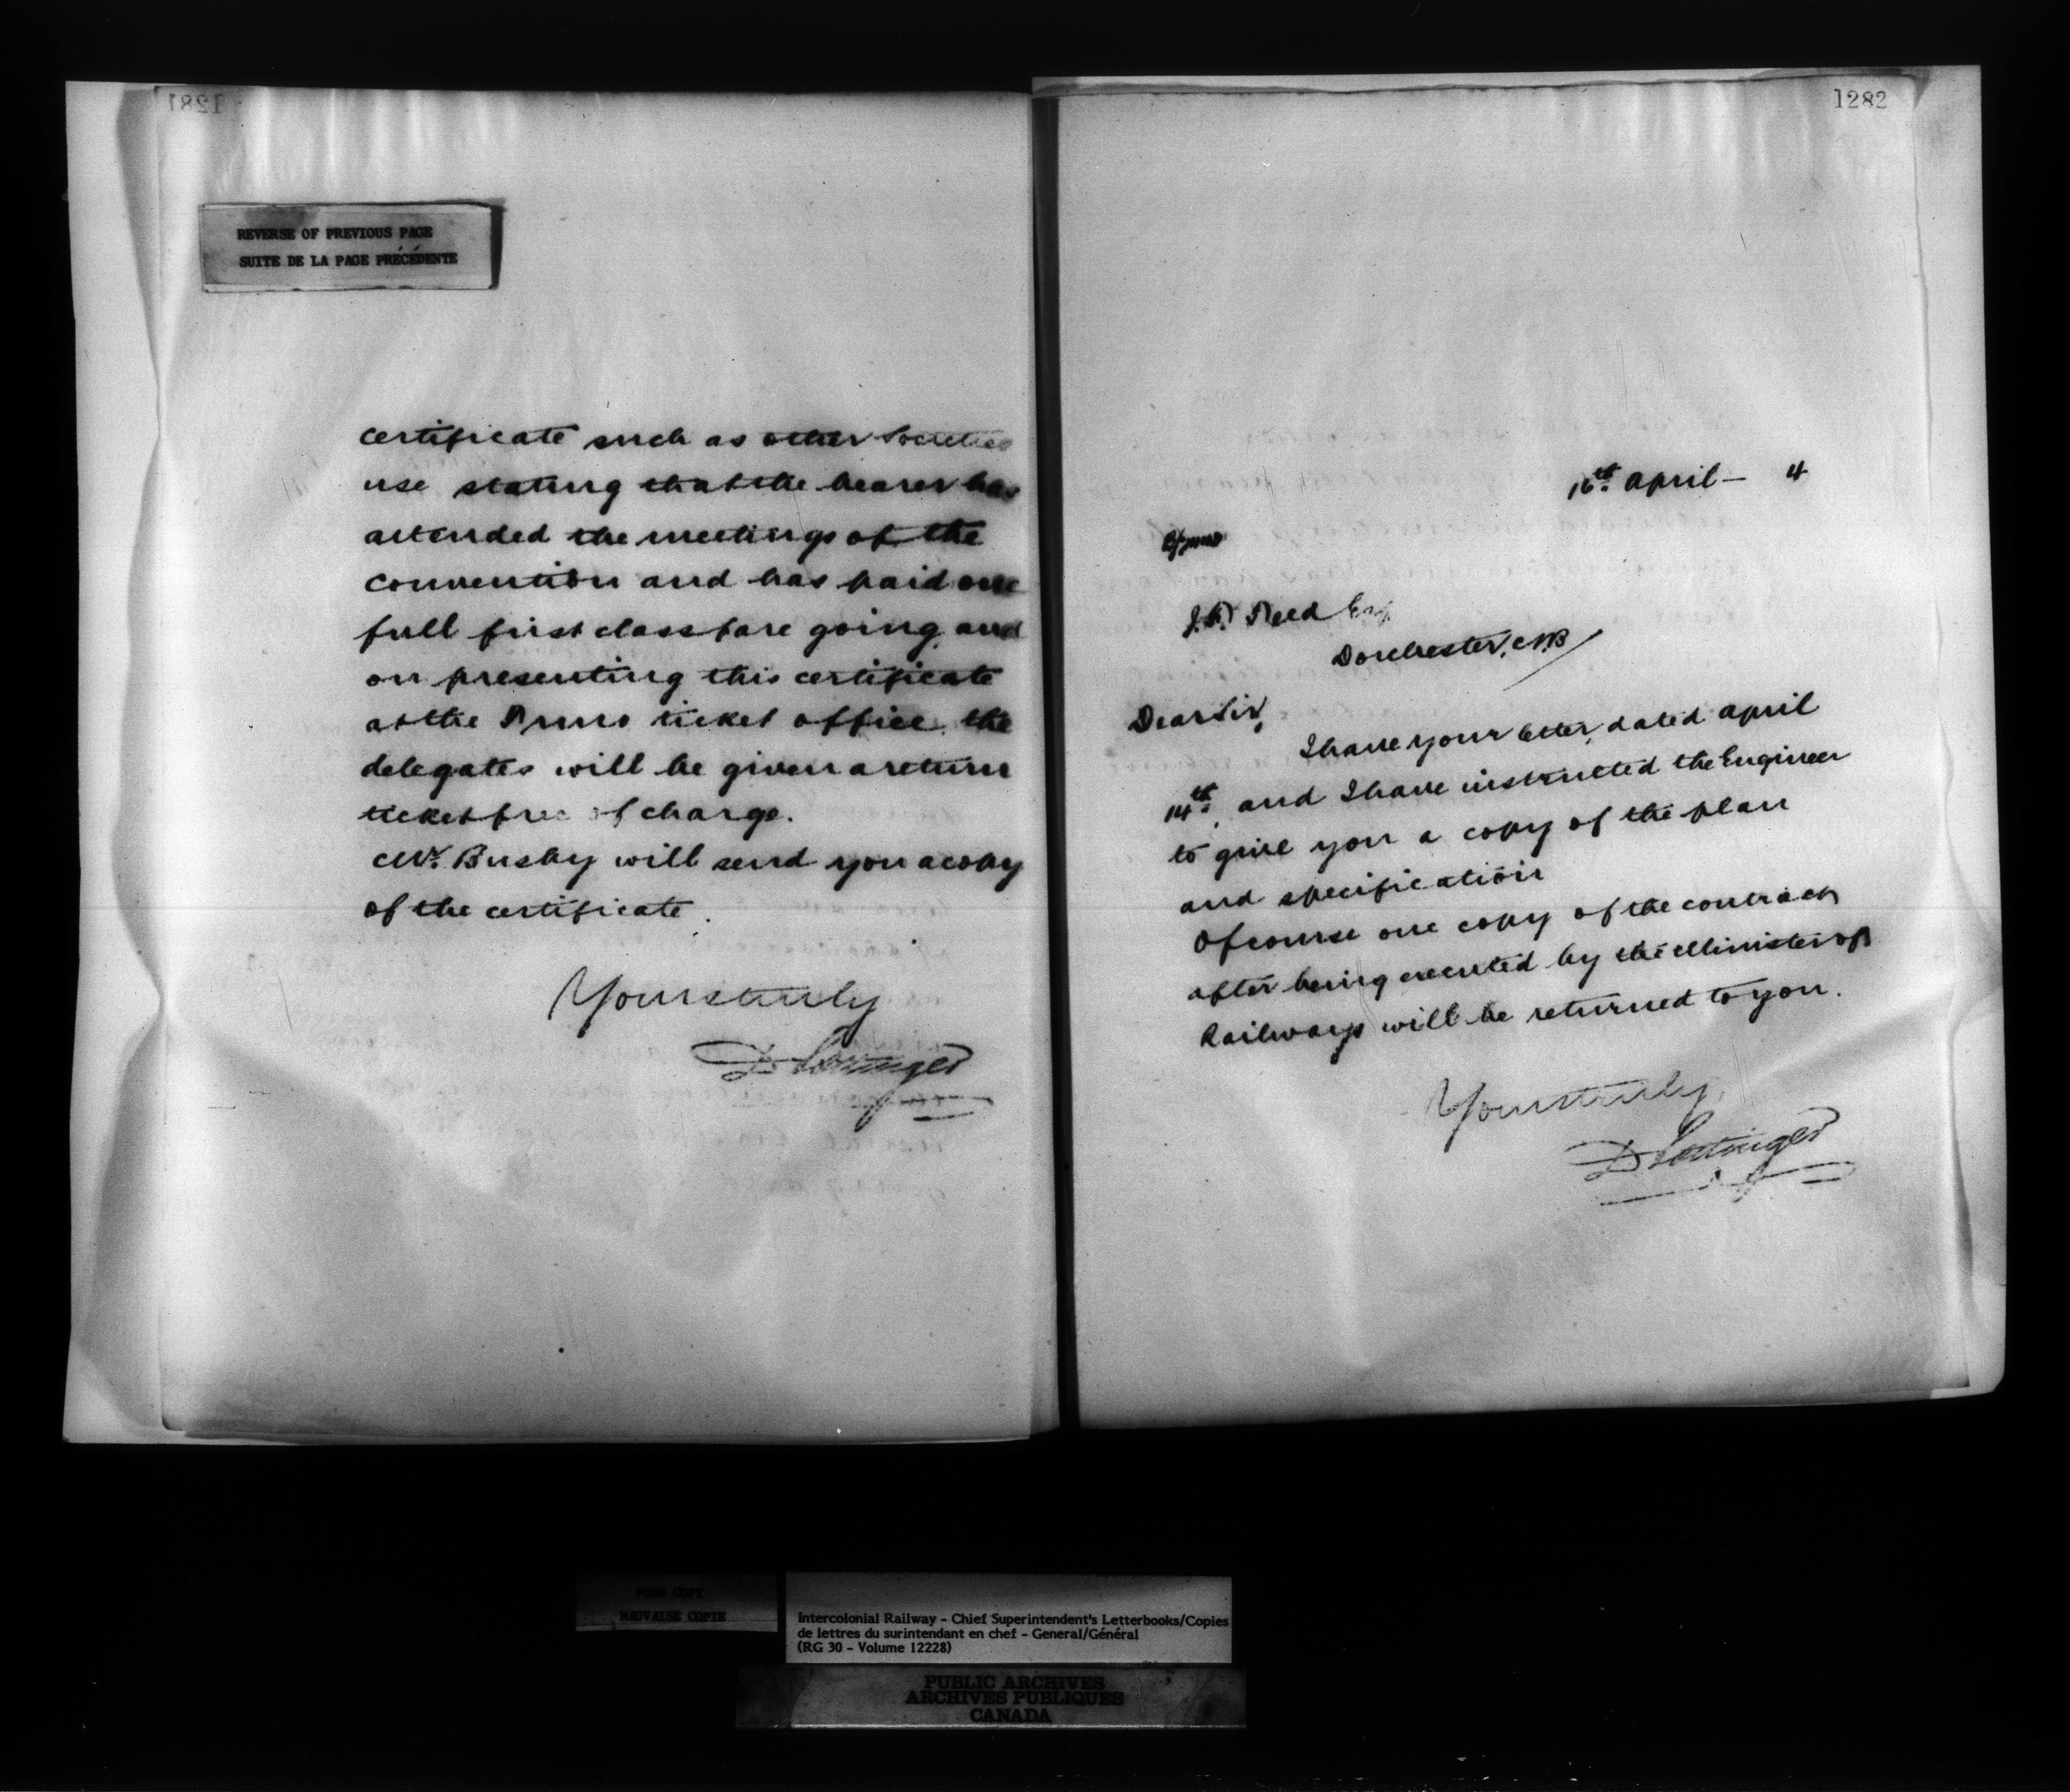 1281
REVERSE OF PREVIOUS PAGE
SUITE DE LA PAGE PRÉCÉDENTE
certificate such as other Societies
use stating that the bearer has
attended the meetings of the
convention and has paid one
full first class fare going and
on presenting this certificate
at the Truro ticket office the
delegates will be given a return
ticket free of charge.
Mr. Busby will send you a copy
of the certificate.
Yours truly
D Pottinger
1282
16th April - 4
Reed Esq
Dorchester, N.B
Dear Sir,
I have your letter, dated april
14th, and I have instructed the Engineer
to give you a copy of the plan
and specification
Of course one copy of the contract
after being executed by the Minister of
Railways will be returned to you.
Yours truly,
D Pottinger
POOR COPY
MAUVAISE COPIE
Intercolonial Railway - Chief Superintendent's Letterbooks/Copies
de lettres du surintendant en chef - General/Général
(RG 30 - Volume 12228)
PUBLIC ARCHIVES
ARCHIVES PUBLIQUES
CANADA